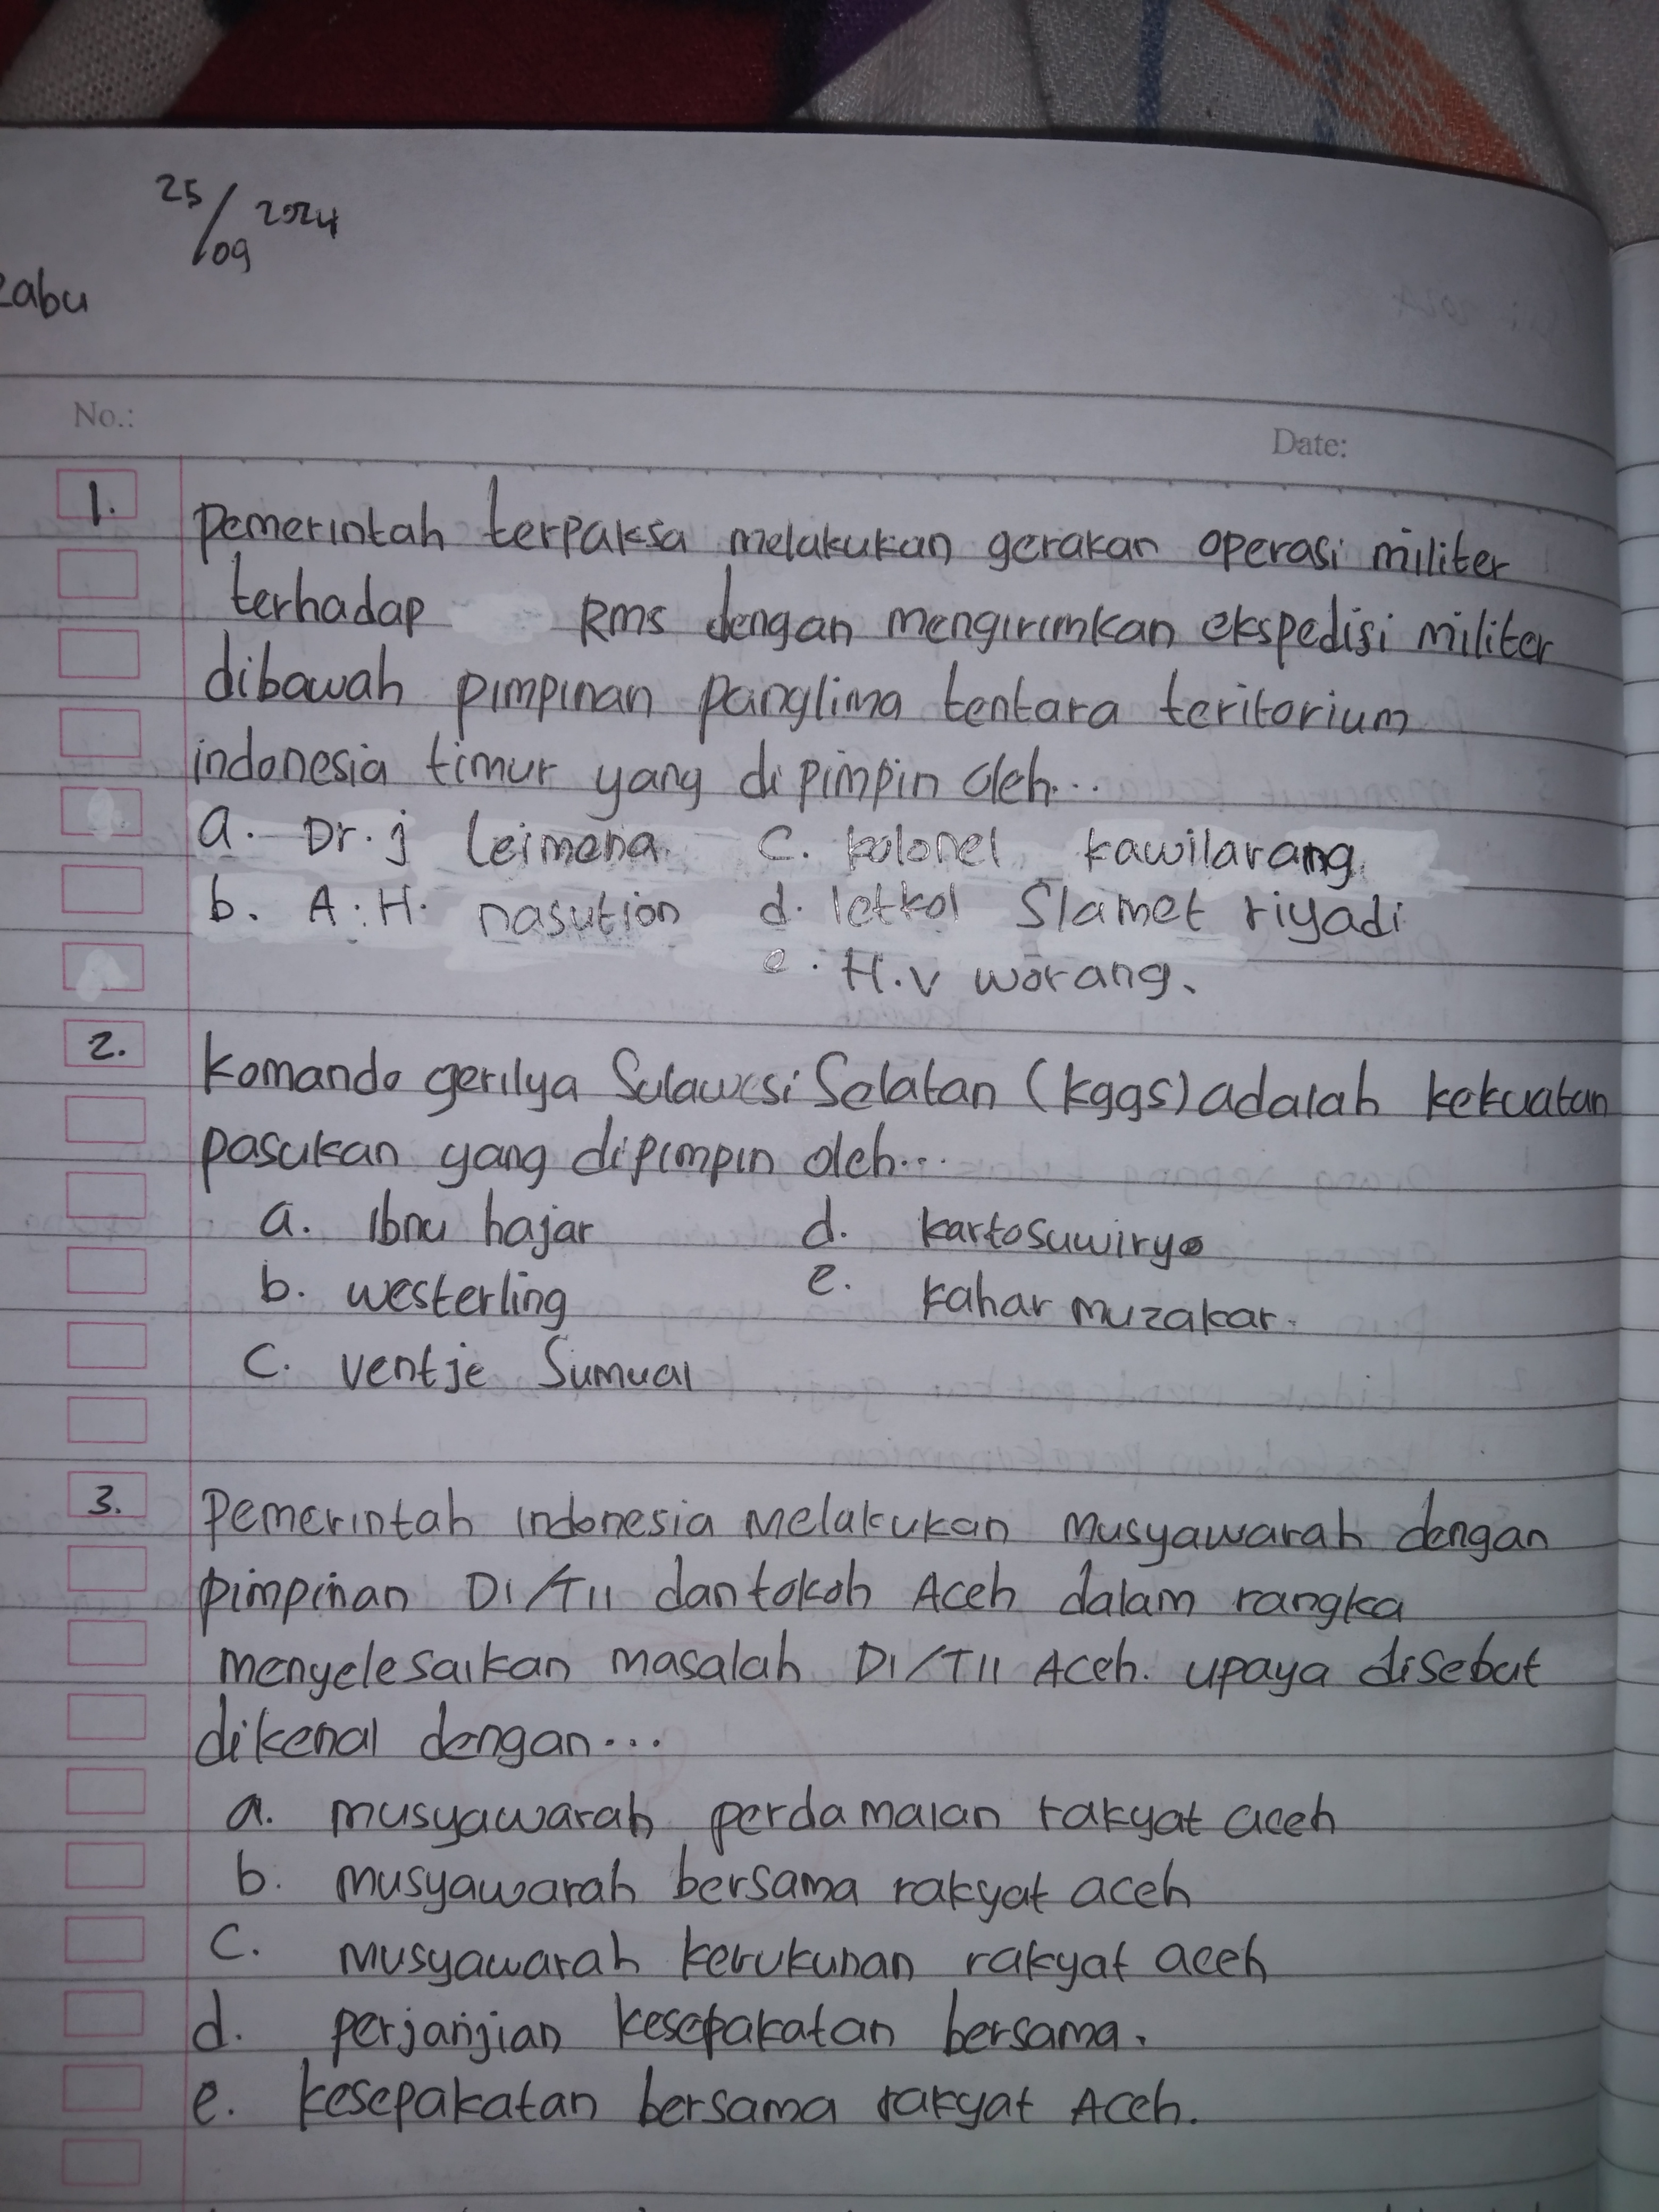 25/09 2024
Rabu
No.:
Date:
1. Pemerintah terpaksa melakukan gerakan operasi militer
terhadap RMS dengan mengirimkan ekspedisi militer
dibawah pimpinan panglima tentara teritorium
indonesia timur yang di pimpin oleh...
a. Dr. j Leimena. c. kolonel kawilarang.
b. A.H. nasution d. letkol Slamet riyadi
e. H.V worang.
2. Komando gerilya Sulawesi Selatan (kggs) adalah kekuatan
pasukan yang dipimpin oleh...
a. Ibnu hajar d. kartosuwiryo
b. westerling e. kahar muzakar.
c. ventje Sumual
3. Pemerintah indonesia melakukan musyawarah dengan
pimpinan DI/TII dan tokoh Aceh dalam rangka
menyelesaikan masalah DI/TII Aceh. upaya disebut
dikenal dengan...
a. musyawarah perdamaian rakyat aceh
b. musyawarah bersama rakyat aceh
c. musyawarah kerukunan rakyat aceh
d. perjanjian kesepakatan bersama.
e. kesepakatan bersama rakyat Aceh.